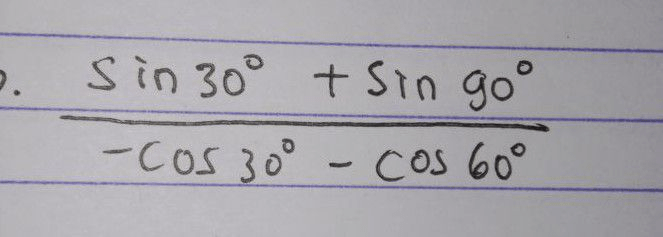 . sin 30° + sin 90°
-cos 30° - cos 60°